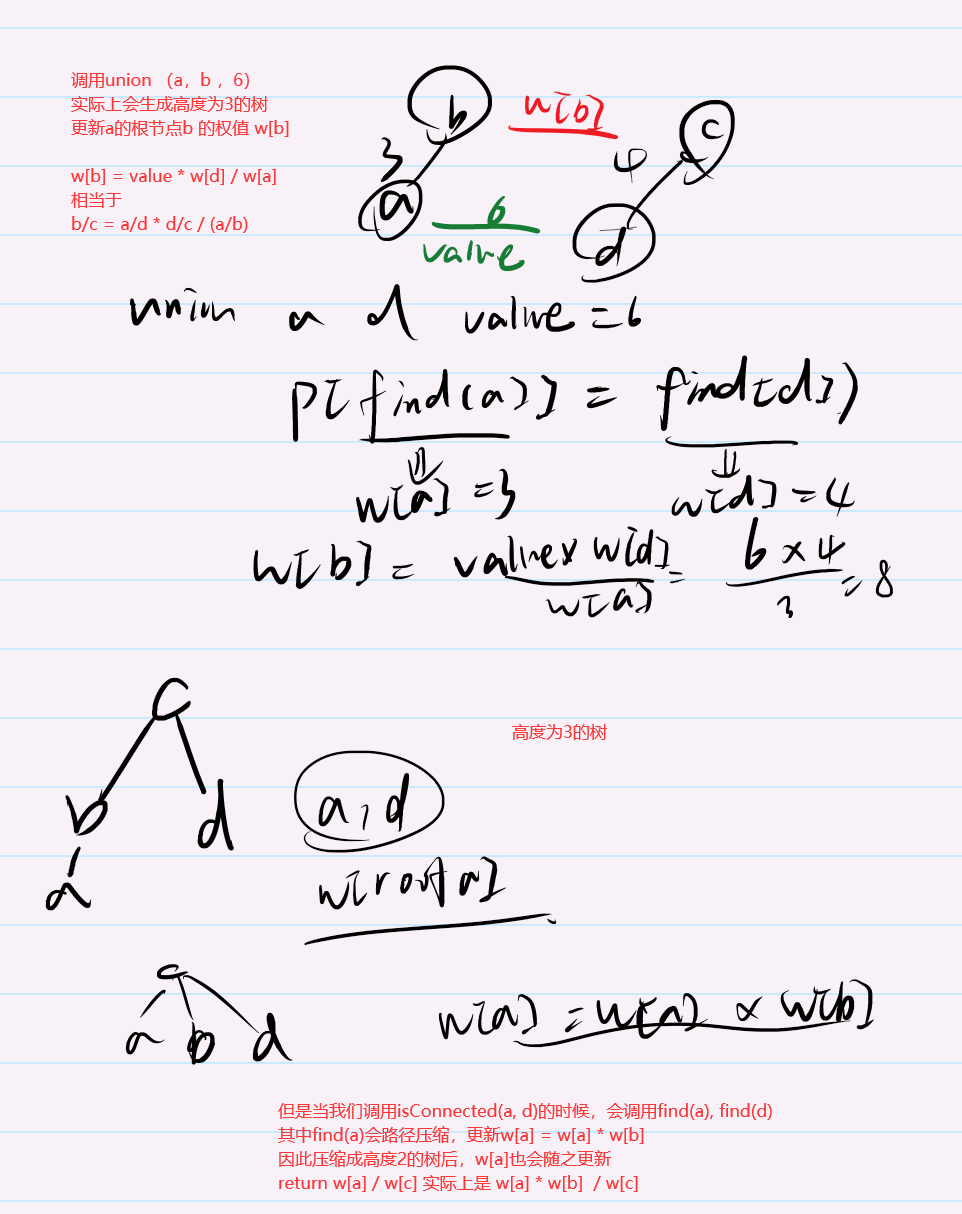 调用union （a，b ，6）
实际上会生成高度为3的树
更新a的根节点b 的权值 w[b]
w[b] = value * w[d] / w[a]
相当于
b/c = a/d * d/c / (a/b)
b
w[b]
c
3
4
a
6
d
value
union a d value = 6
P[find(a)] = find[d])
w[a] = 3
w[d] = 4
w[b] = value x w[d] / w[a] = 6 x 4 / 3 = 8
c
高度为3的树
b
d
a, d
a
w[root a]
c
a b d
w[a] = w[a] x w[b]
但是当我们调用isConnected(a, d)的时候，会调用find(a), find(d)
其中find(a)会路径压缩，更新w[a] = w[a] * w[b]
因此压缩成高度2的树后，w[a]也会随之更新
return w[a] / w[c] 实际上是 w[a] * w[b] / w[c]